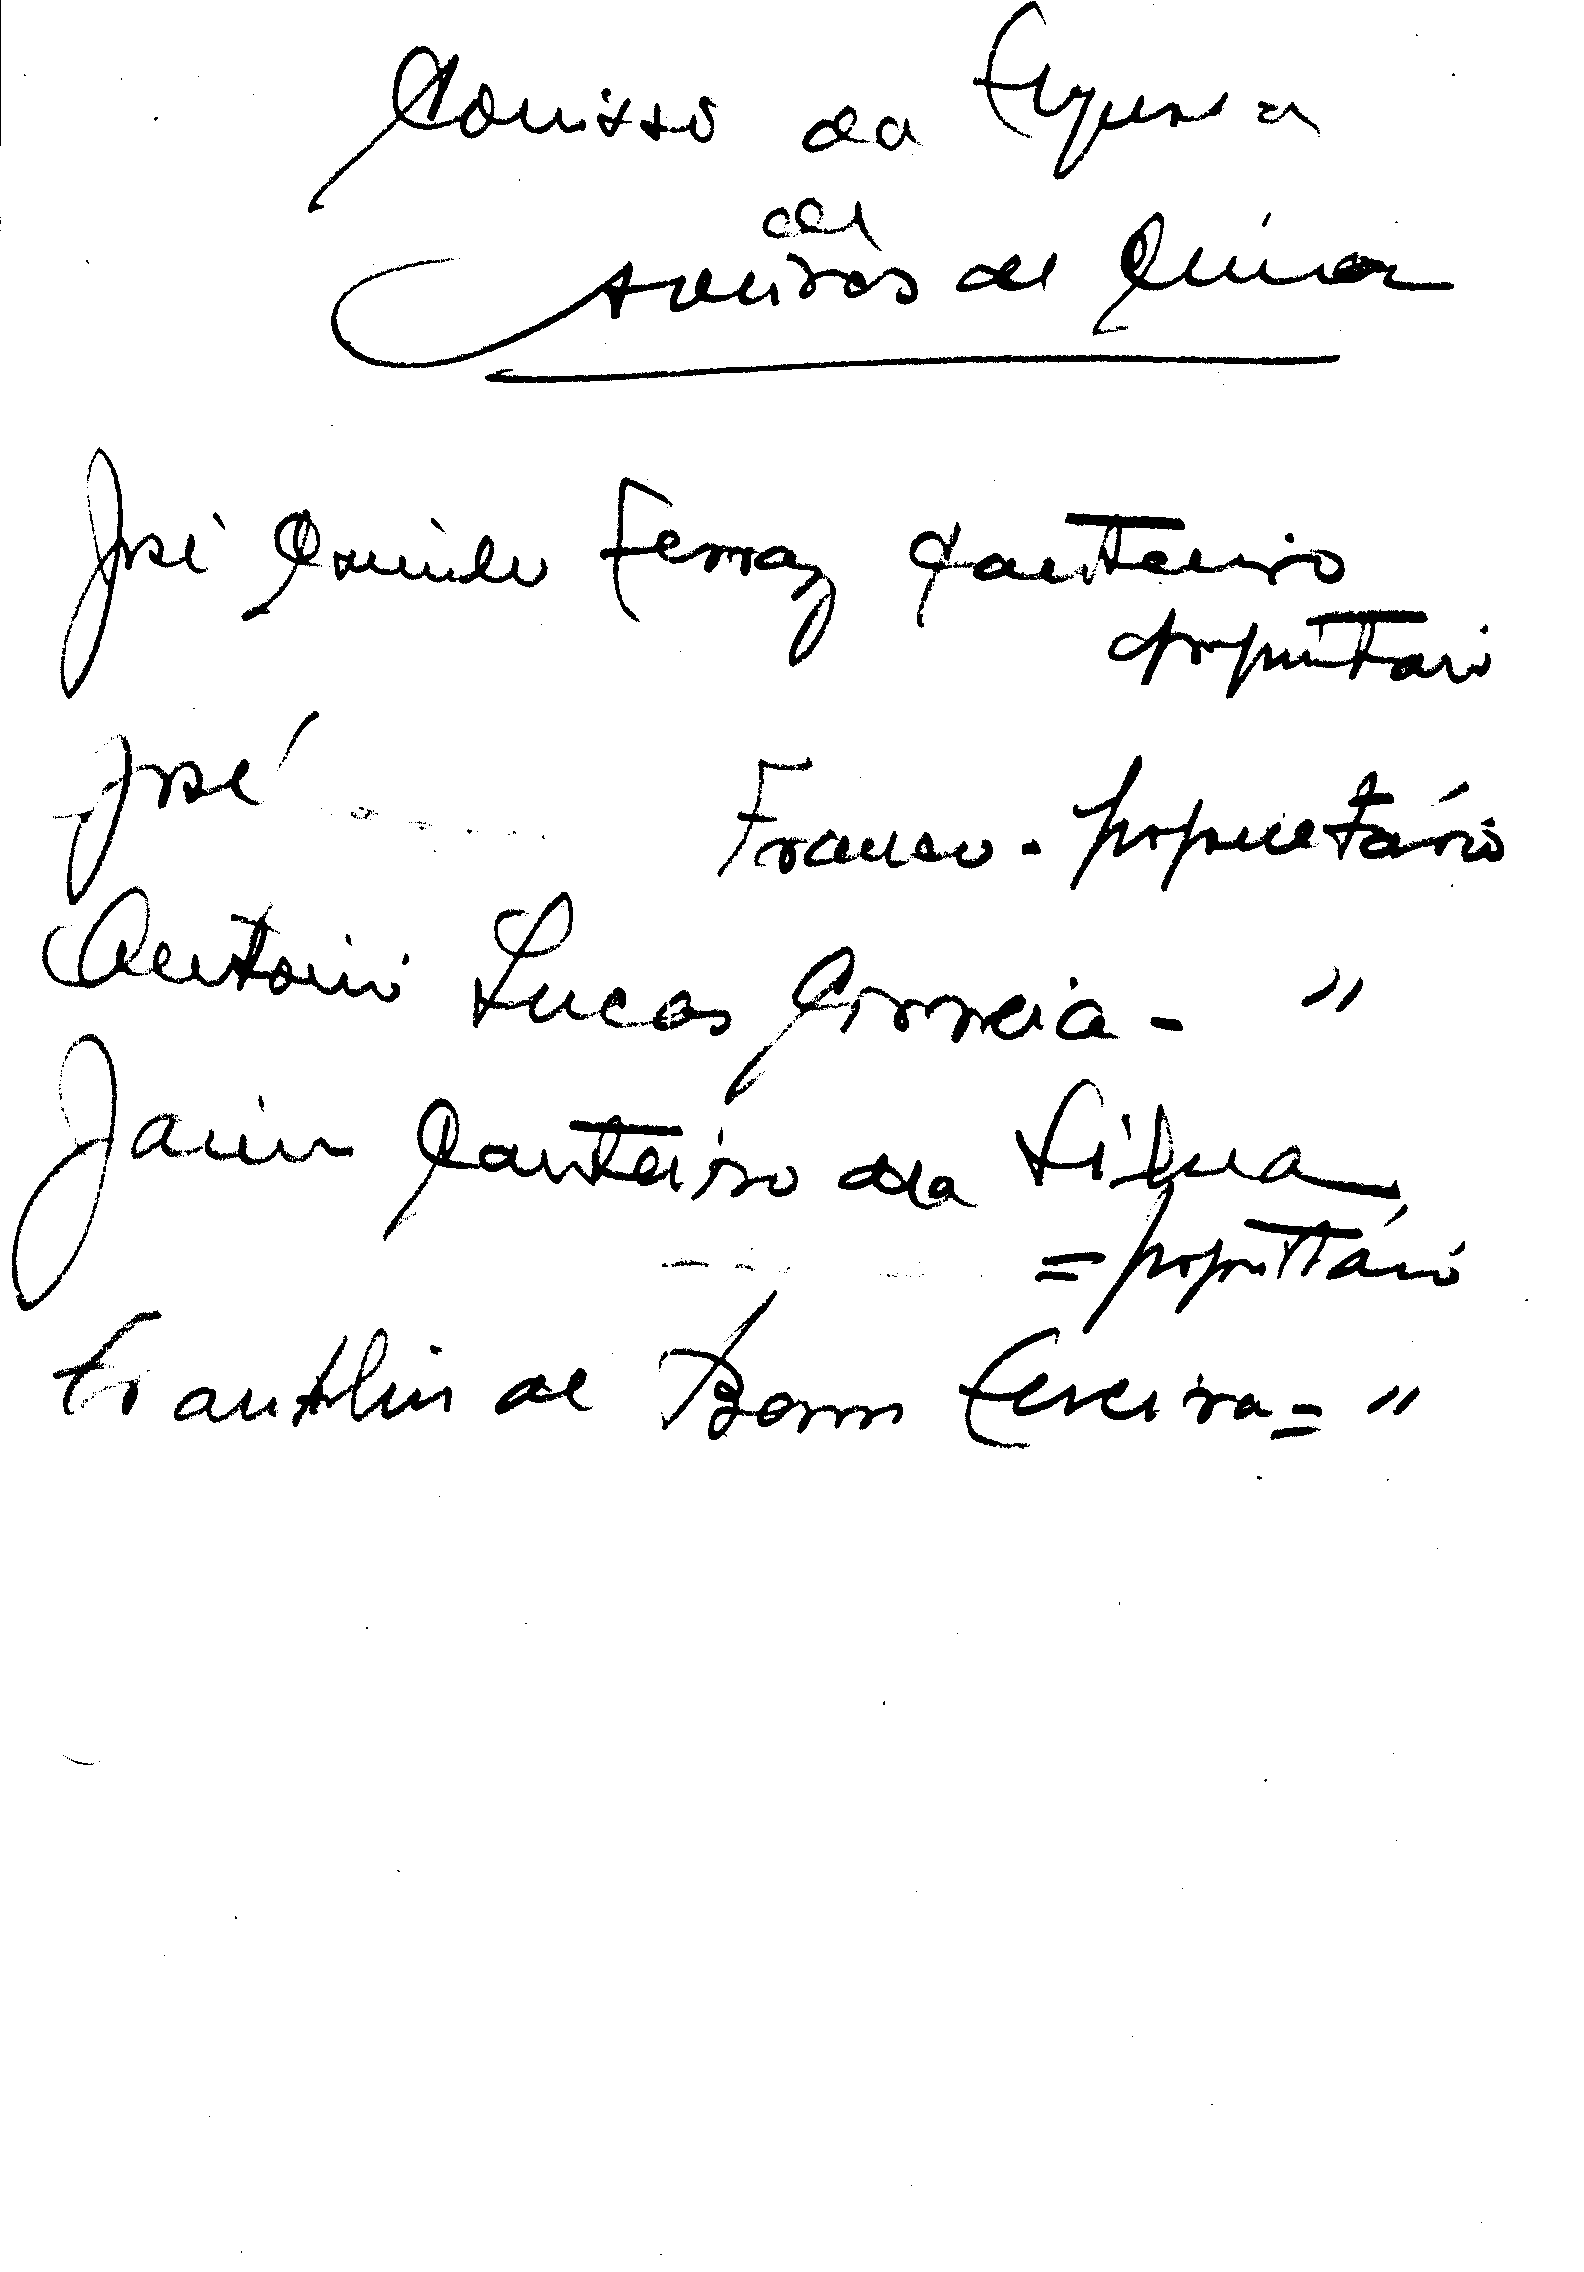 Comissão da Freguesia
de
Aveiras de Cima
José Ferraz Canteiro
proprietário
José Franco - proprietário
António Lucas Correia - "
Jaime Canteiro da Silva
= proprietário
Franklin de Ferreira = "